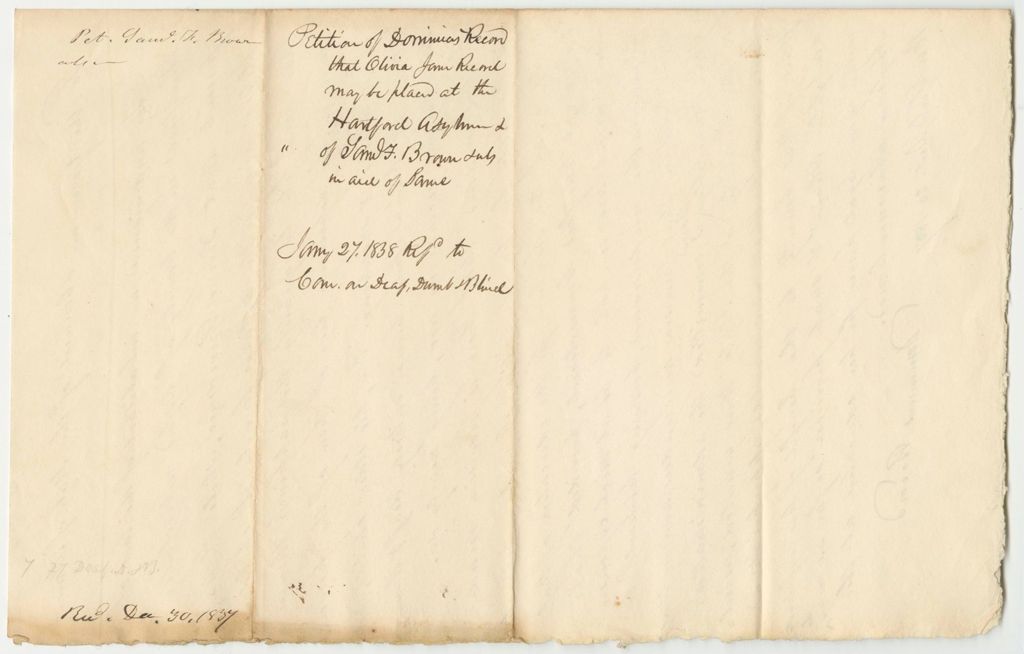 Pet. Saml. F. Brown
Petition of Dominicus Record
that Olivia Jane Record
may be placed at the
Hartford Asylum &
" of Saml F. Brown &als
in aid of Same
Jany 27. 1838 Refd to
Com. on Deaf, Dumb & Blind
27 Deaf. D. &B.
Recd. Dec. 30. 1837